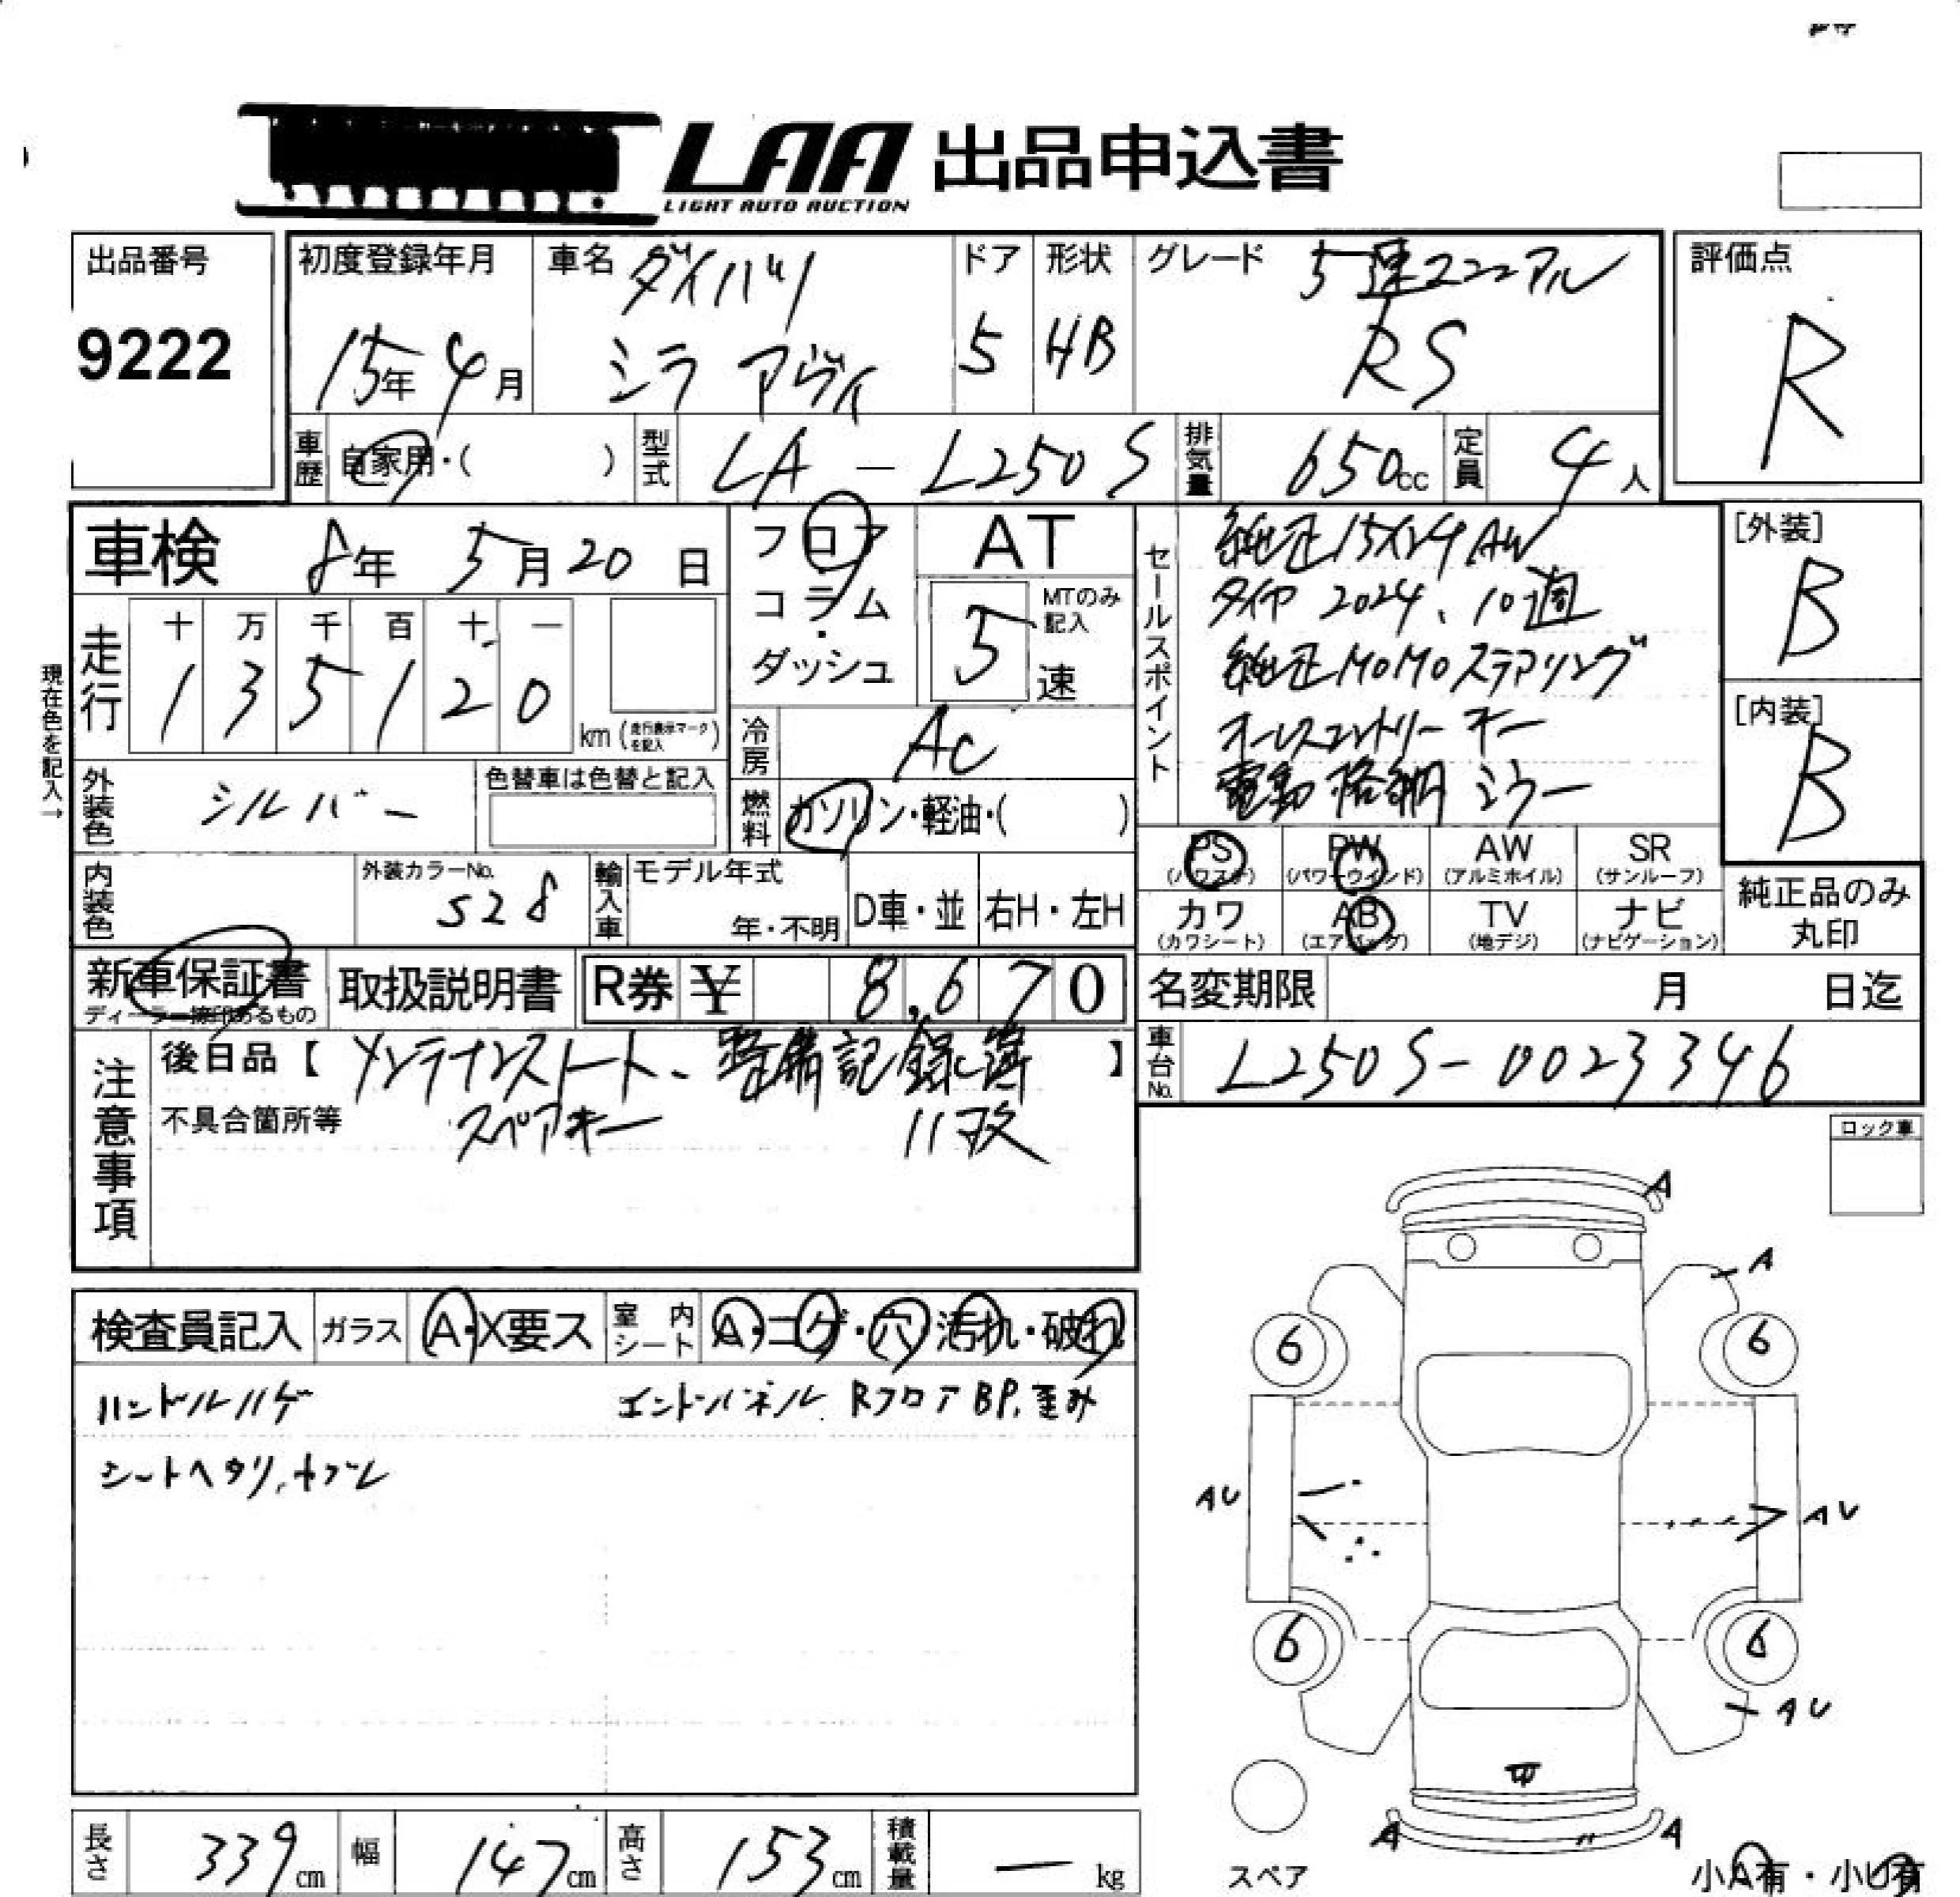 LAA 出品申込書
LIGHT AUTO AUCTION
出品番号
9222
初度登録年月
15年 4月
車名 ダイハツ
ミラ アヴィ
ドア
5
形状
HB
グレード 5速マニュアル
RS
評価点
R
車歴 自家用・( )
型式 LA - L250S
排気量 650cc
定員 4人
車検 8年 5月 20日
現在色を記入→
走行
十 万 千 百 十 一
1 3 5 1 2 0
km (走行表示マークを記入)
フロア
コラム
・
ダッシュ
AT
MTのみ
記入
5 速
冷房 AC
セールスポイント
純正15インチAW
タイヤ 2024、10週
純正MOMOステアリング
キーレスエントリーキー
電動格納ミラー
[外装]
B
[内装]
B
外装色 シルバー
色替車は色替と記入
燃料 ガソリン・軽油・( )
PS
(パワステ)
PW
(パワーウインド)
AW
(アルミホイル)
SR
(サンルーフ)
カワ
(カワシート)
AB
(エアバッグ)
TV
(地デジ)
ナビ
(ナビゲーション)
純正品のみ
丸印
内装色
外装カラーNo.
S28
輸入車
モデル年式
年・不明
D車・並
右H・左H
新車保証書
ディーラー捺印あるもの
取扱説明書
R券 ¥ 8,670
名変期限 月 日迄
車台No. L250S-0023346
注意事項
後日品【 メンテナンスノート、整備記録簿 】
不具合箇所等 スペアキー 11枚
ロック車
検査員記入
ガラス A・X要ス
室内シート A・コゲ・穴 汚れ・破れ
ハンドルハゲ エンドパネル Rフロア BP.歪み
シートヘタリ.
A
A
6 6
AU AU
6 6
AU
A A
スペア
小A有・小U有
長さ 339cm
幅 147cm
高さ 153cm
積載量 — kg